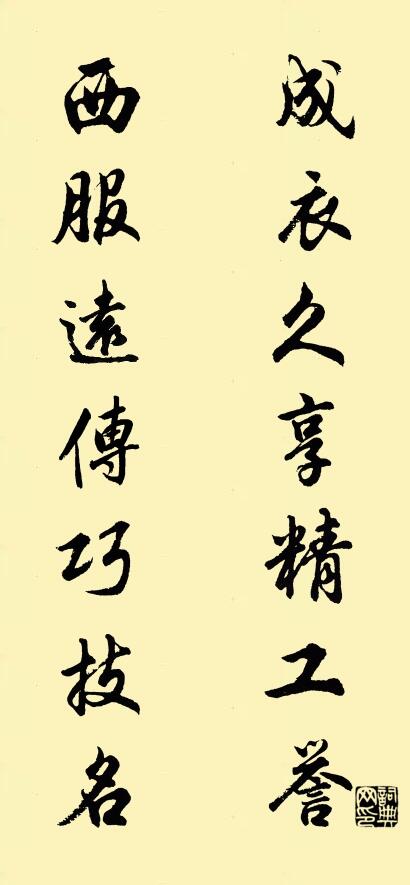 成衣久享精工誉
西服遠傳巧技名
詞典网印